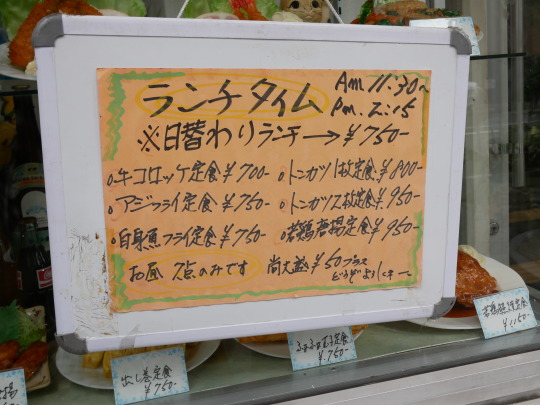 ランチタイム
Am 11:30~
Pm 2:15
※日替わりランチ→¥750-
牛コロッケ定食¥700-
アジフライ定食¥750-
白身魚フライ定食¥750-
トンカツ1枚定食¥800-
トンカツ2枚定食¥950-
若鶏唐揚定食¥950-
お昼 7点のみです
尚大盛¥50プラス
どうぞよろしくネー
出し巻定食
¥750-
¥750-
¥1150-